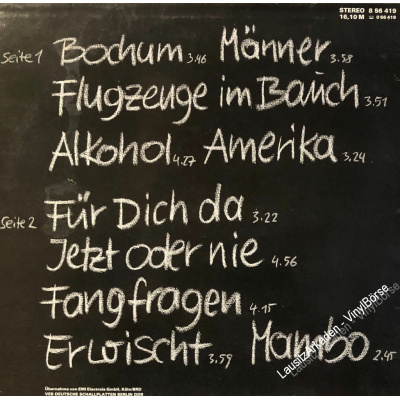 STEREO 8 56 419
16,10 M 0 56 419
Seite 1 Bochum 3.46 Männer 3.58
Flugzeuge im Bauch 3.51
Alkohol 4.27 Amerika 3.24
Seite 2 Für Dich da 3.22
Jetzt oder nie 4.56
Fangfragen 4.15
Erwischt 3.59 Mambo 2.45
Übernahme von EMI Electrola GmbH, Köln/BRD
VEB DEUTSCHE SCHALLPLATTEN BERLIN DDR
Lausitz-Arkaden, VinylBörse